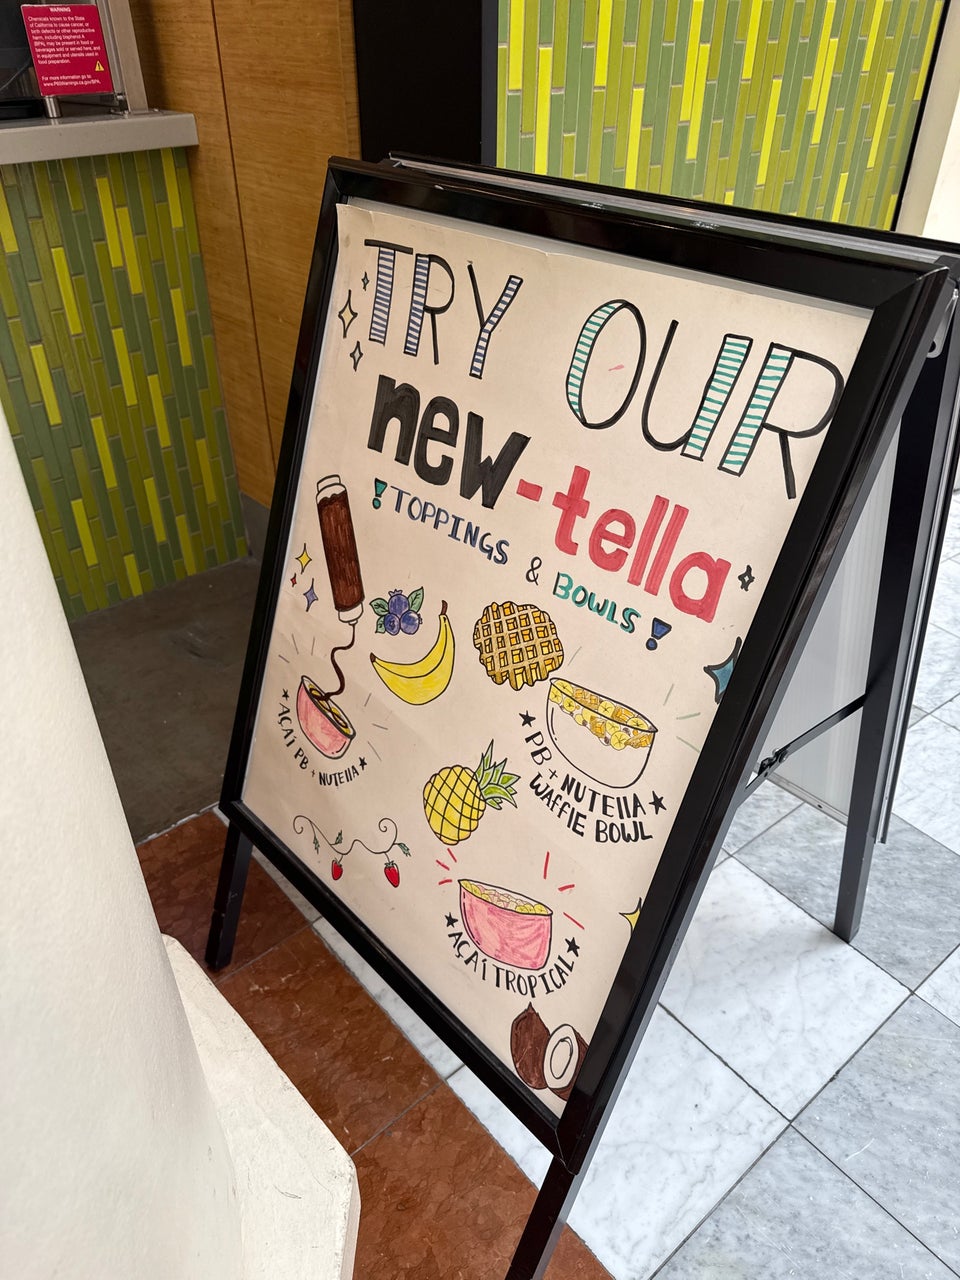 WARNING
Chemicals known to the State
of California to cause cancer, or
birth defects or other reproductive
harm, including bisphenol A
(BPA), may be present in food or
beverages sold or served here, and
in equipment and utensils used in
food preparation.
For more information go to:
www.P65Warnings.ca.gov/BPA.
TRY OUR
new-tella
! TOPPINGS & BOWLS !
AÇAÍ PB + NUTEllA
PB + NUTEllA
WAFFlE BOWL
AÇAí TROPICAL